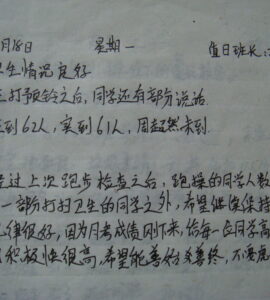 月18日 星期一 值日班长:
卫生情况良好
打预铃之后,同学还有部分说话
到62人,实到61人,周超然未到.
过上次跑步检查之后,跑操的同学人数
一部分打扫卫生的同学之外,希望继续保持
律很好,因为月考成绩刚下来,给每一位同学高
积极性很高,希望能善始善终,不要虎